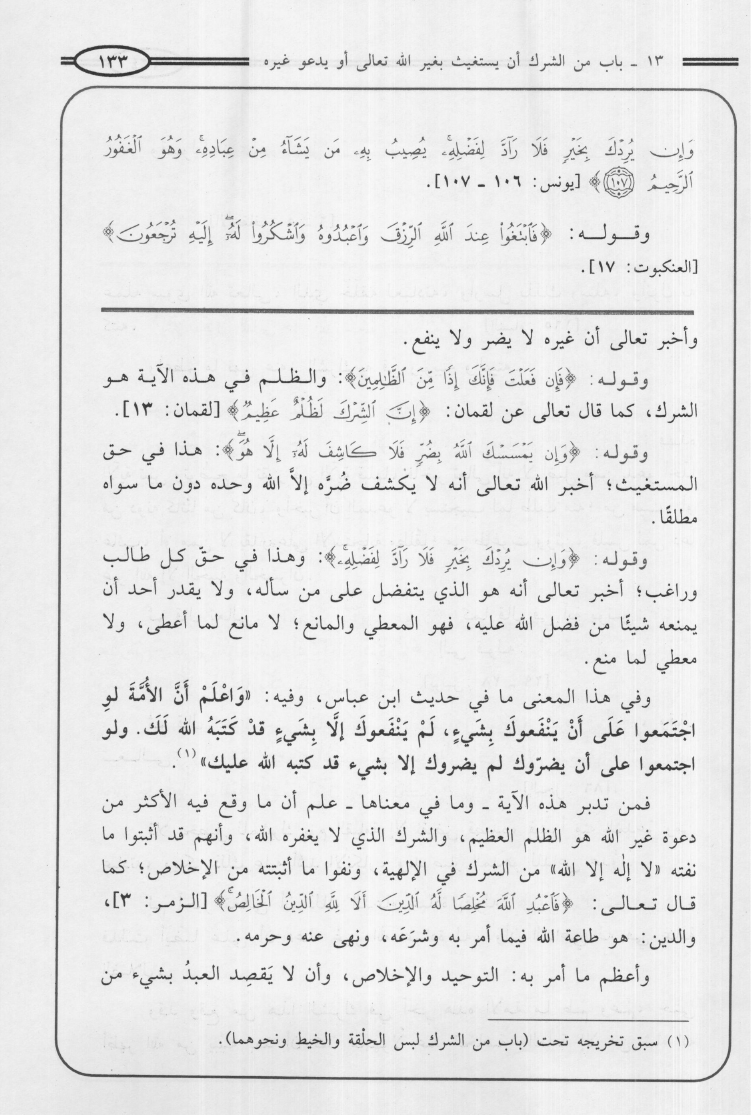 ١٣ ـ باب من الشرك أن يستغيث بغير الله تعالى أو يدعو غيره
١٣٣
وَإِن يُرِدْكَ بِخَيْرٍ فَلَا رَآدَّ لِفَضْلِهِۦۚ يُصِيبُ بِهِۦ مَن يَشَآءُ مِنْ عِبَادِهِۦۚ وَهُوَ ٱلْغَفُورُ
ٱلرَّحِيمُ ١٠٧﴾ [يونس: ١٠٦ ـ ١٠٧].
وقـولـه: ﴿فَٱبْتَغُوا۟ عِندَ ٱللَّهِ ٱلرِّزْقَ وَٱعْبُدُوهُ وَٱشْكُرُوا۟ لَهُۥٓۖ إِلَيْهِ تُرْجَعُونَ﴾
[العنكبوت: ١٧].
وأخبر تعالى أن غيره لا يضر ولا ينفع.
وقـولـه: ﴿فَإِن فَعَلْتَ فَإِنَّكَ إِذًا مِّنَ ٱلظَّٰلِمِينَ﴾: والـظـلـم فـي هـذه الآيـة هـو
الشرك، كما قال تعالى عن لقمان: ﴿إِنَّ ٱلشِّرْكَ لَظُلْمٌ عَظِيمٌ﴾ [لقمان: ١٣].
وقوله: ﴿وَإِن يَمْسَسْكَ ٱللَّهُ بِضُرٍّ فَلَا كَاشِفَ لَهُۥٓ إِلَّا هُوَۖ﴾: هذا في حق
المستغيث؛ أخبر الله تعالى أنه لا يكشف ضُرَّه إلاَّ الله وحده دون ما سواه
مطلقًا.
وقوله: ﴿وَإِن يُرِدْكَ بِخَيْرٍ فَلَا رَآدَّ لِفَضْلِهِۦۚ﴾: وهذا في حقّ كل طالب
وراغب؛ أخبر تعالى أنه هو الذي يتفضل على من سأله، ولا يقدر أحد أن
يمنعه شيئًا من فضل الله عليه، فهو المعطي والمانع؛ لا مانع لما أعطى، ولا
معطي لما منع.
وفي هذا المعنى ما في حديث ابن عباس، وفيه: «وَاعْلَمْ أَنَّ الأُمَّةَ لوِ
اجْتَمَعوا عَلَى أَنْ يَنْفَعوكَ بِشَيءٍ، لَمْ يَنْفَعوكَ إلَّا بِشَيءٍ قدْ كَتَبَهُ الله لَكَ. ولو
اجتمعوا على أن يضرّوك لم يضروك إلا بشيء قد كتبه الله عليك»(١).
فمن تدبر هذه الآية ـ وما في معناها ـ علم أن ما وقع فيه الأكثر من
دعوة غير الله هو الظلم العظيم، والشرك الذي لا يغفره الله، وأنهم قد أثبتوا ما
نفته «لا إلٰه إلا الله» من الشرك في الإلهية، ونفوا ما أثبتته من الإخلاص؛ كما
قـال تـعـالـى: ﴿فَٱعْبُدِ ٱللَّهَ مُخْلِصًا لَّهُ ٱلدِّينَ أَلَا لِلَّهِ ٱلدِّينُ ٱلْخَالِصُۚ﴾ [الـزمـر: ٣]،
والدين: هو طاعة الله فيما أمر به وشرَعَه، ونهى عنه وحرمه.
وأعظم ما أمر به: التوحيد والإخلاص، وأن لا يَقصِد العبدُ بشيء من
(١) سبق تخريجه تحت (باب من الشرك لبس الحلْقة والخيط ونحوهما).